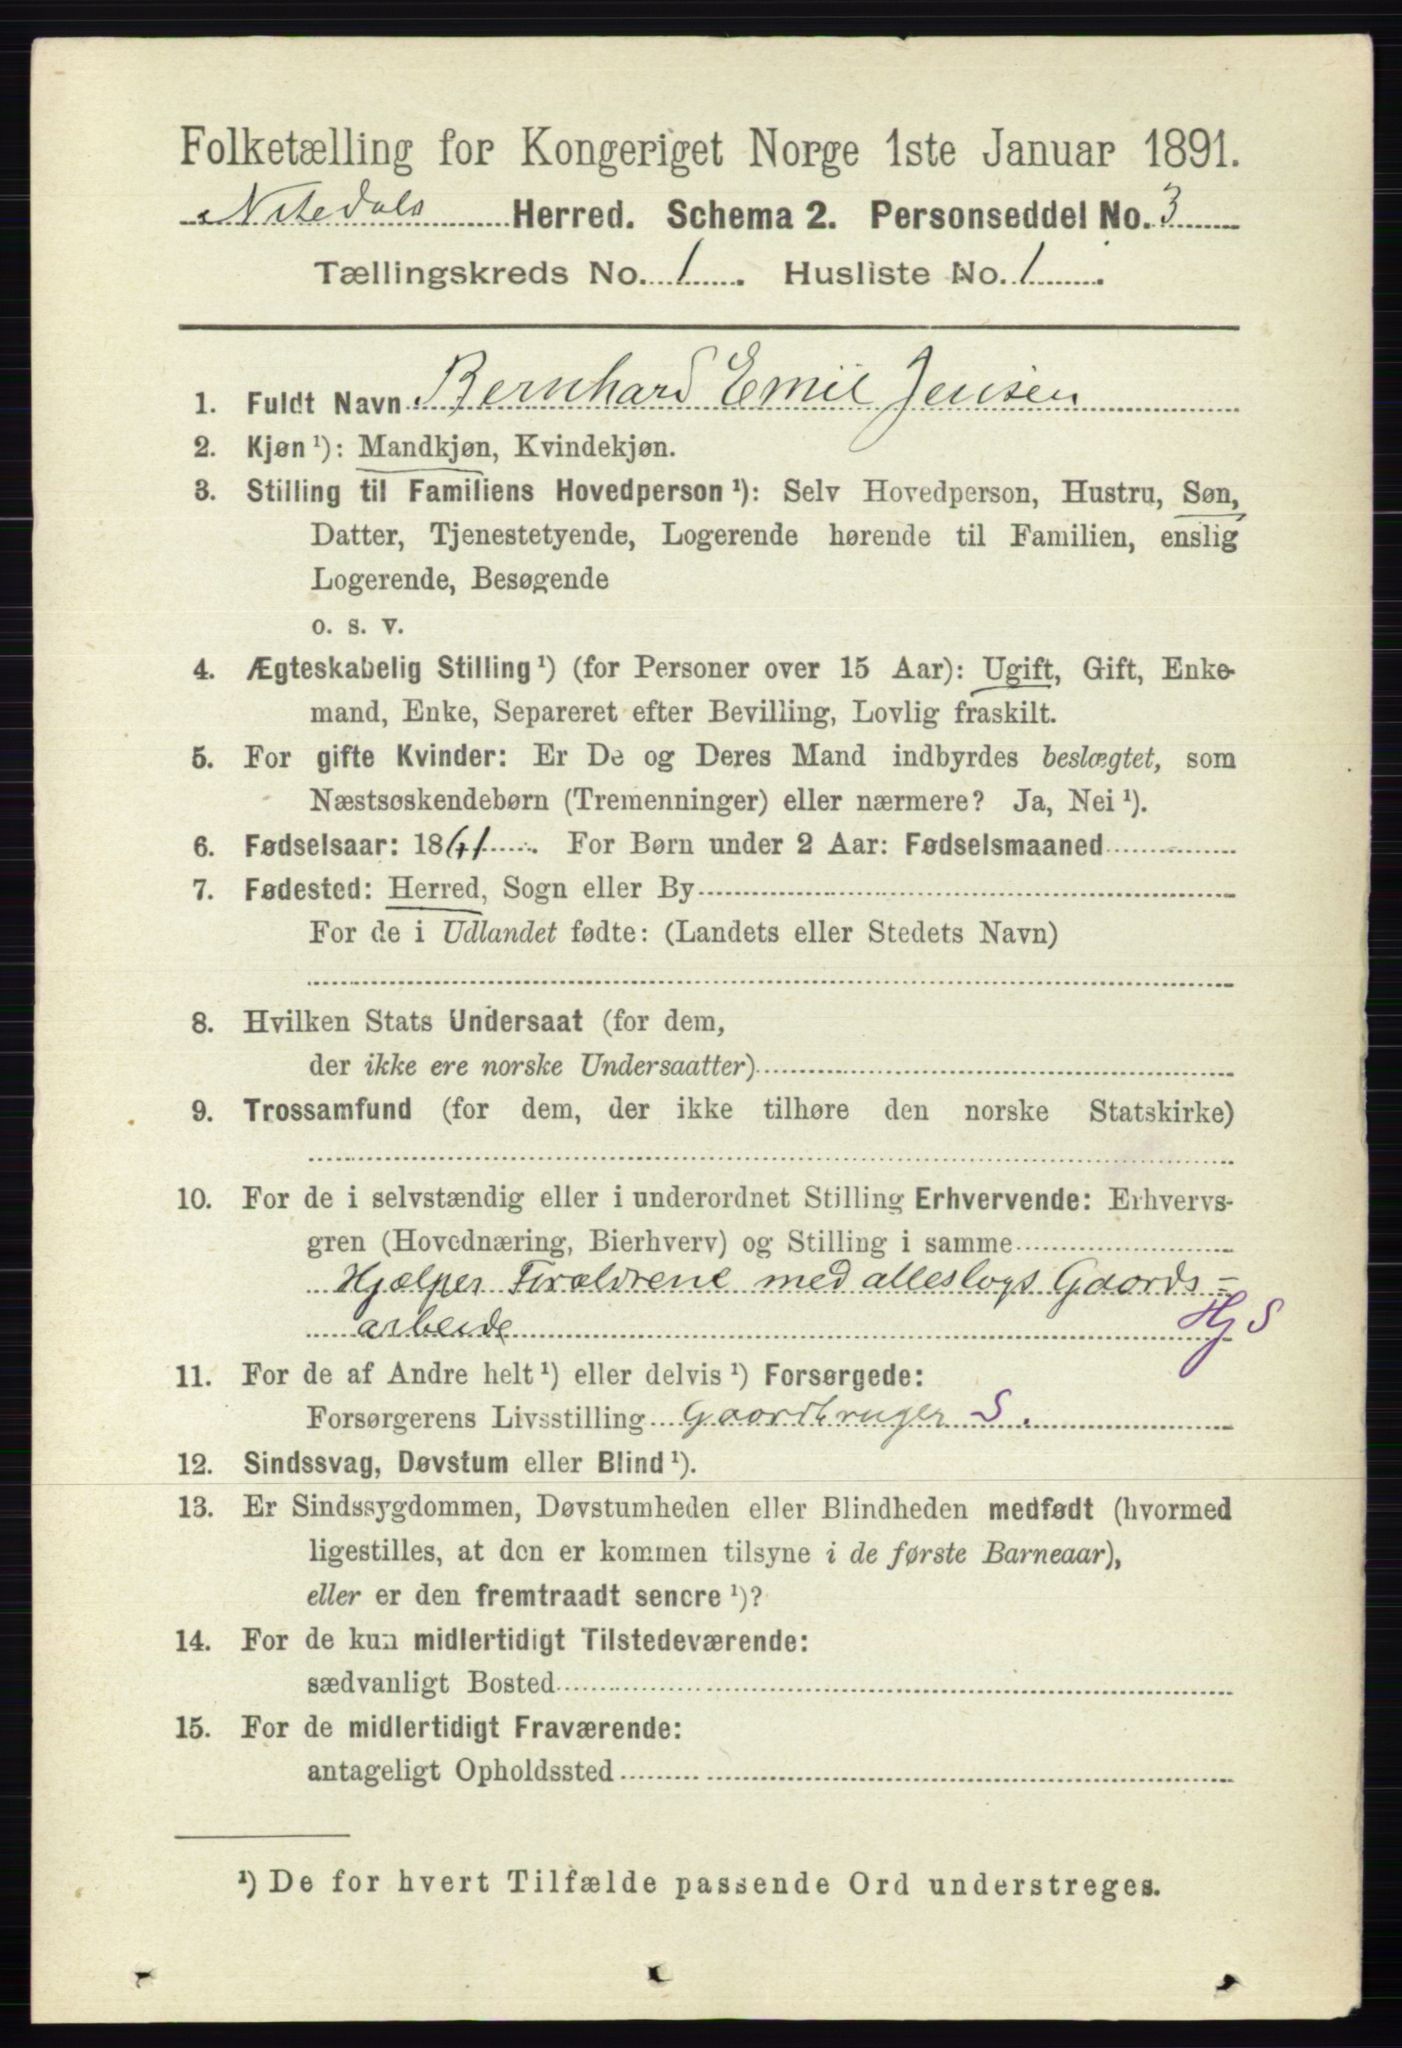 Folketælling for Kongeriget Norge 1ste Januar 1891.
Nitedals Herred. Schema 2. Personseddel No. 3
Tællingskreds No. 1. Husliste No. 1.
1. Fuldt Navn Bernhard Emil Jensen
2. Kjøn ¹): Mandkjøn, Kvindekjøn.
3. Stilling til Familiens Hovedperson ¹): Selv Hovedperson, Hustru, Søn,
Datter, Tjenestetyende, Logerende hørende til Familien, enslig
Logerende, Besøgende
o. s. v.
4. Ægteskabelig Stilling ¹) (for Personer over 15 Aar): Ugift, Gift, Enke-
mand, Enke, Separeret efter Bevilling, Lovlig fraskilt.
5. For gifte Kvinder: Er De og Deres Mand indbyrdes beslægtet, som
Næstsøskendebørn (Tremenninger) eller nærmere? Ja, Nei ¹).
6. Fødselsaar: 1861. For Børn under 2 Aar: Fødselsmaaned
7. Fødested: Herred, Sogn eller By
For de i Udlandet fødte: (Landets eller Stedets Navn)
8. Hvilken Stats Undersaat (for dem,
der ikke ere norske Undersaatter)
9. Trossamfund (for dem, der ikke tilhøre den norske Statskirke)
10. For de i selvstændig eller i underordnet Stilling Erhvervende: Erhvervs-
gren (Hovednæring, Bierhverv) og Stilling i samme
Hjælper Forældrene med alleslags Gaards=
arbeide Hj S
11. For de af Andre helt ¹) eller delvis ¹) Forsørgede:
Forsørgerens Livsstilling Gaardbruger S.
12. Sindssvag, Døvstum eller Blind ¹).
13. Er Sindssygdommen, Døvstumheden eller Blindheden medfødt (hvormed
ligestilles, at den er kommen tilsyne i de første Barneaar),
eller er den fremtraadt senere ¹)?
14. For de kun midlertidigt Tilstedeværende:
sædvanligt Bosted
15. For de midlertidigt Fraværende:
antageligt Opholdssted
¹) De for hvert Tilfælde passende Ord understreges.